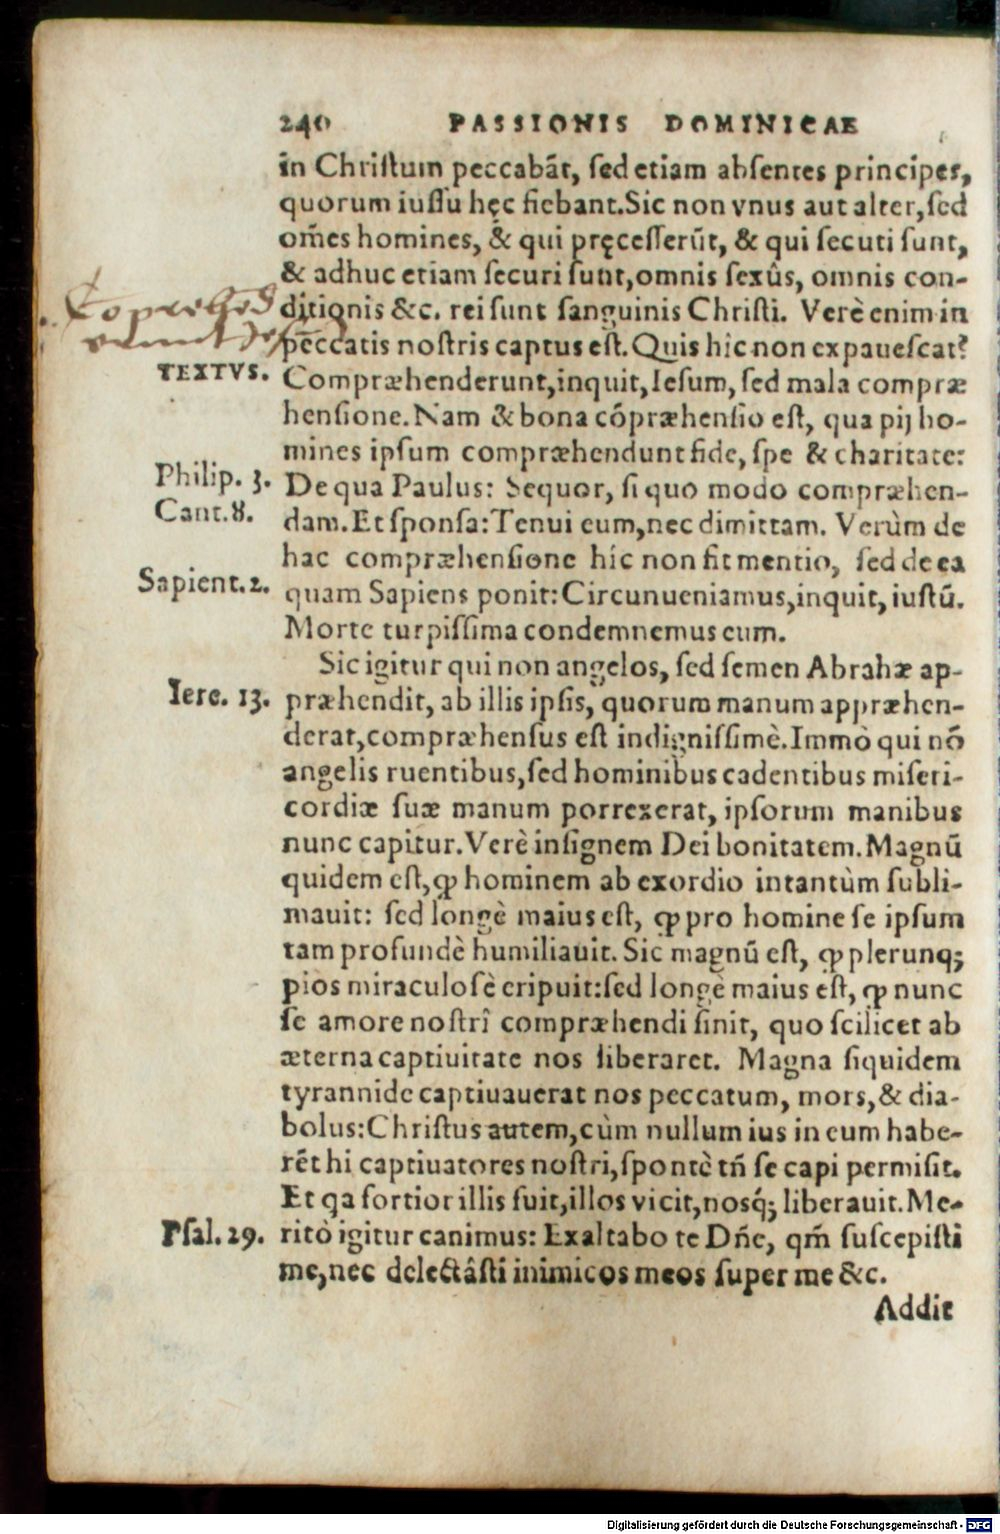 240 PASSIONIS DOMINICAE
in Chriſtum peccabāt, ſed etiam abſentes principes,
quorum iuſſu hęc fiebant. Sic non vnus aut alter, ſed
om̃es homines, & qui pręceſſerūt, & qui ſecuti ſunt,
& adhuc etiam ſecuri ſunt, omnis ſexûs, omnis con-
ditionis &c. rei ſunt ſanguinis Chriſti. Verè enim in
pēccatis noſtris captus eſt. Quis hic non expaueſcat?
TEXTVS. Compræhenderunt, inquit, Ieſum, ſed mala compræ
henſione. Nam & bona cōpræhenſio eſt, qua pij ho-
mines ipſum compræhendunt fide, ſpe & charitate:
Philip. 3. De qua Paulus: Sequor, ſi quo modo compræhen-
Cant. 8. dam. Et ſponſa: Tenui eum, nec dimittam. Verùm de
hac compræhenſione hic non fit mentio, ſed de ea
Sapient. 2. quam Sapiens ponit: Circunueniamus, inquit, iuſtū.
Morte turpiſſima condemnemus eum.
Sic igitur qui non angelos, ſed ſemen Abrahæ ap-
Iere. 13. præhendit, ab illis ipſis, quorum manum appræhen-
derat, compræhenſus eſt indigniſſimè. Immò qui nō
angelis ruentibus, ſed hominibus cadentibus miſeri-
cordiæ ſuæ manum porrexerat, ipſorum manibus
nunc capitur. Verè inſignem Dei bonitatem. Magnū
quidem eſt, ꝙ hominem ab exordio in tantùm ſubli-
mauit: ſed longè maius eſt, ꝙ pro homine ſe ipſum
tam profundè humiliauit. Sic magnū eſt, ꝙ plerunq;
pios miraculoſè eripuit: ſed longè maius eſt, ꝙ nunc
ſe amore noſtrî compræhendi ſinit, quo ſcilicet ab
æterna captiuitate nos liberaret. Magna ſiquidem
tyrannide captiuauerat nos peccatum, mors, & dia-
bolus: Chriſtus autem, cùm nullum ius in eum habe-
rēt hi captiuatores noſtri, ſpontè tñ ſe capi permiſit.
Et qa fortior illis fuit, illos vicit, nosq́; liberauit. Me-
Pſal. 29. ritò igitur canimus: Exaltabo te Dñe, qm̃ ſuſcepiſti
me, nec delectâſti inimicos meos ſuper me &c.
Addit
Digitalisierung gefördert durch die Deutsche Forschungsgemeinschaft - DFG